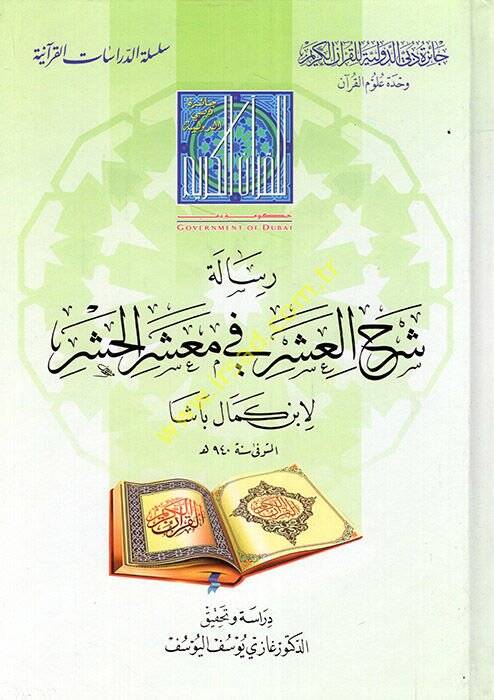 جائزة دبي الدولية للقرآن الكريم
وحدة علوم القرآن
سلسلة الدراسات القرآنية
جائزة
دبي
الدولية
للقرآن الكريم
حكومة دبي
GOVERNMENT OF DUBAI
رسالة
شرح العشر في معشر الحشر
لابن كمال باشا
المتوفى سنة ٩٤٠ هـ
القرآن الكريم
القرآن الكريم
دراسة وتحقيق
الدكتور غازي يوسف اليوسف